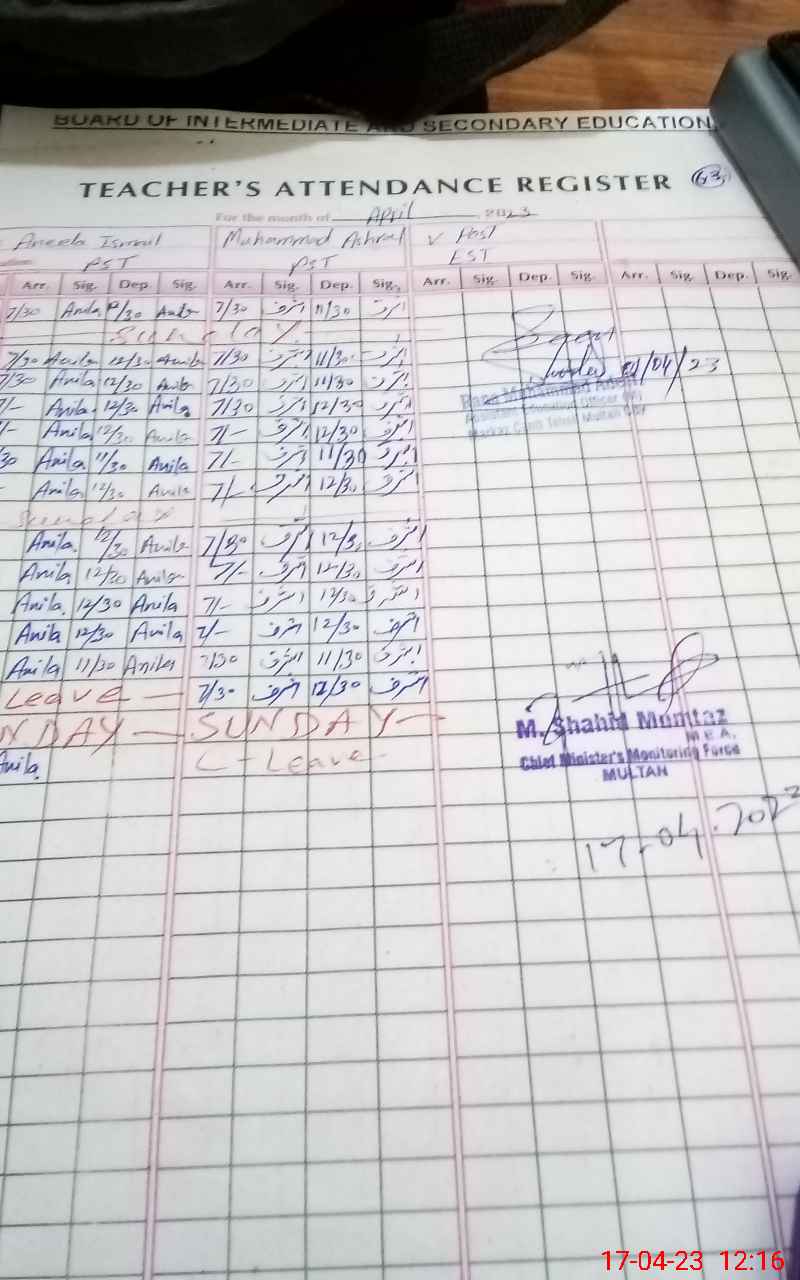 BOARD OF INTERMEDIATE AND SECONDARY EDUCATION,
TEACHER'S ATTENDANCE REGISTER 63
For the month of April, 2023
Aneela Ismail Muhammad Ashraf V Post
PST PST EST
Arr. Sig. Dep. Sig. Arr. Sig. Dep. Sig. Arr. Sig. Dep. Sig. Arr. Sig. Dep. Sig.
7/30 Anila 12/30 Anila 7/30 اشرف 11/30 اشرف
Sunday
7/30 Anila 12/30 Anila 7/30 اشرف 11/30 اشرف
7/30 Anila 12/30 Anila 7/30 اشرف 11/30 اشرف
7/- Anila 12/30 Anila 7/30 اشرف 12/30 اشرف
/- Anila 12/30 Anila 7/- اشرف 12/30 اشرف
30 Anila 11/30 Anila 7/- اشرف 11/30 اشرف
- Anila 12/30 Anila 7/- اشرف 12/30 اشرف
Sunday
Anila 12/30 Anila 7/30 اشرف 12/30 اشرف
Anila 12/30 Anila 7/- اشرف 12/30 اشرف
Anila 12/30 Anila 7/- اشرف 12/30 اشرف
Anila 12/30 Anila 7/- اشرف 12/30 اشرف
Anila 11/30 Anila 7/30 اشرف 11/30 اشرف
Leave 7/30 اشرف 12/30 اشرف
NDAY SUNDAY
Anila C-Leave
04/23
Rana Muhammad
Assistant Education Officer
M. Shahid Mumtaz
M E A.
Chief Minister's Monitoring Force
MULTAN
17-04-2023
17-04-23 12:16